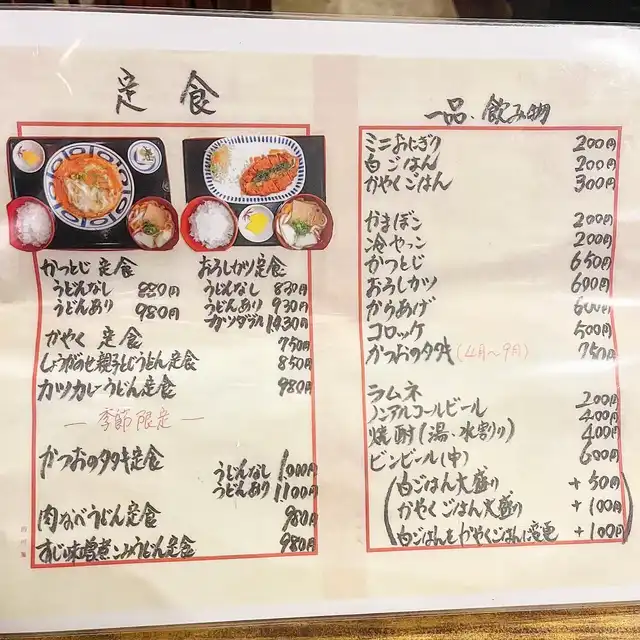 定食
かつとじ定食
うどんなし 880円
うどんあり 980円
おろしカツ定食
うどんなし 830円
うどんあり 930円
カツダブル 1430円
かやく定食 750円
しょうがのせ親子とじうどん定食 850円
カツカレーうどん定食 980円
― 季節限定 ―
かつおのタタキ定食
うどんなし 1,000円
うどんあり 1,100円
肉なべうどん定食 980円
すじ味噌煮こみうどん定食 980円
一品、飲み物
ミニおにぎり 200円
白ごはん 200円
かやくごはん 300円
かまぼこ 200円
冷やっこ 200円
かつとじ 650円
おろしカツ 600円
からあげ 600円
コロッケ 500円
かつおのタタキ(4月〜9月) 750円
ラムネ 200円
ノンアルコールビール 400円
焼酎(湯・水割り) 400円
ビンビール(中) 600円
(白ごはん大盛り +50円
かやくごはん大盛り +100円
白ごはんをかやくごはんに変更 +100円)